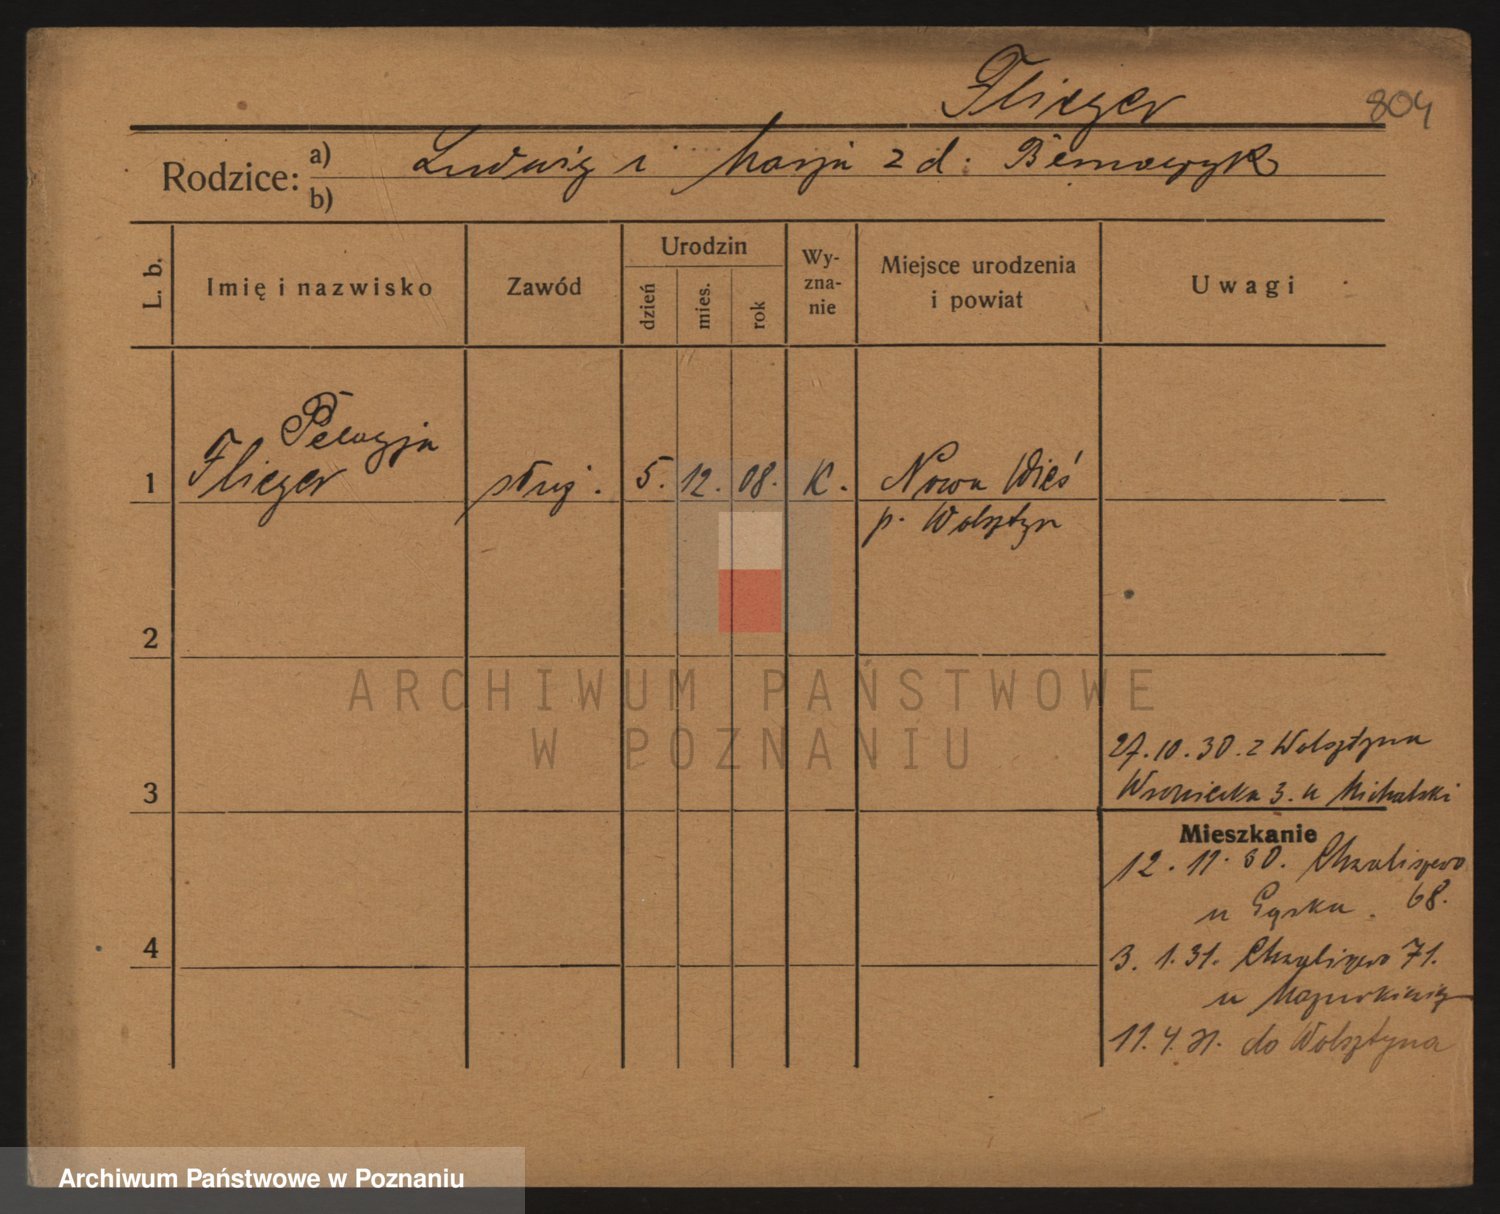 Flieger
804
Rodzice: a) Ludwig i Marja z d.
b)
L. b.
Imię i nazwisko
Zawód
Urodzin
dzień
mies.
rok
Wy-
zna-
nie
Miejsce urodzenia
i powiat
Uwagi
Pelagja
1 Flieger służ. 5. 12. 08. K. Nowa Wieś
p. Wolsztyn
2
ARCHIWUM PAŃSTWOWE
W POZNANIU
27.10.30. z Wolsztyna
3 Wroniecka 3. u Michalski
Mieszkanie
12. 11. 30. Chwaliszewo
u Gąska. 68.
4 3. 1. 31. Chwaliszewo 71.
u
11. 4. 31. do Wolsztyna
Archiwum Państwowe w Poznaniu